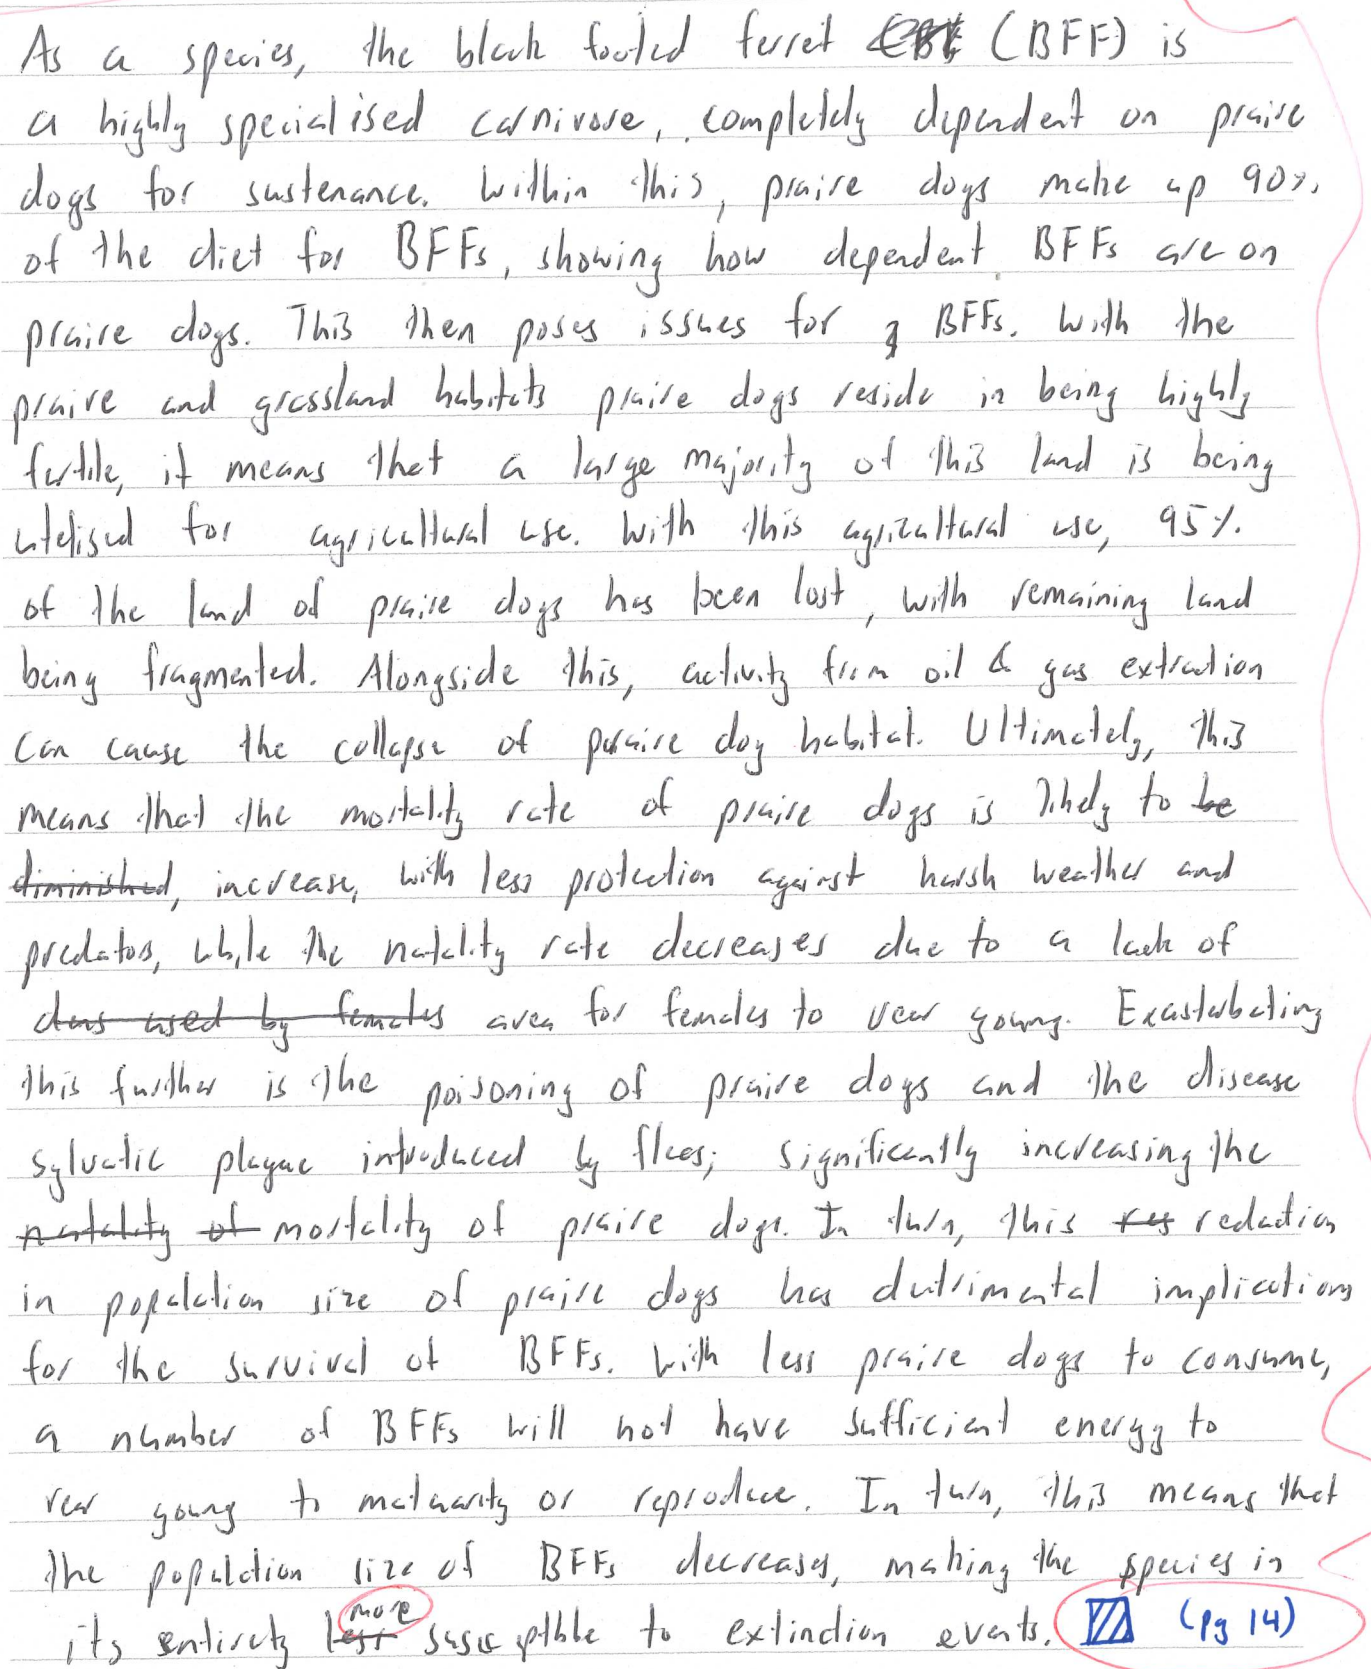 As a species, the black footed ferret (BFF) is
a highly specialised carnivore, completely dependent on praire
dogs for sustenance. Within this, praire dogs make up 90%
of the diet for BFFs, showing how dependent BFFs are on
praire dogs. This then poses issues for BFFs. With the
praire and grassland habitats praire dogs reside in being highly
fertile, it means that a large majority of this land is being
utelised for agricultural use. With this agricultural use, 95%
of the land of praire dogs has been lost, with remaining land
being fragmented. Alongside this, activity from oil & gas extraction
can cause the collapse of praire dog habitat. Ultimately, this
means that the mortality rate of praire dogs is likely to be
diminished, increase, with less protection against harsh weather and
predators, while the natality rate decreases due to a lack of
dens used by females area for females to rear young. Exasterbating
this further is the poisoning of praire dogs and the disease
sylvatic plague introduced by flees; significantly increasing the
natality of mortality of praire dogs. In turn, this res reduction
in population size of praire dogs has dutrimental implications
for the survival of BFFs. With less praire dogs to consume,
a number of BFFs will not have sufficient energy to
rear young to matuarity or reproduce. In turn, this means that
the population size of BFFs decreases, making the species in
its entirety less more susceptible to extinction events. (pg 14)